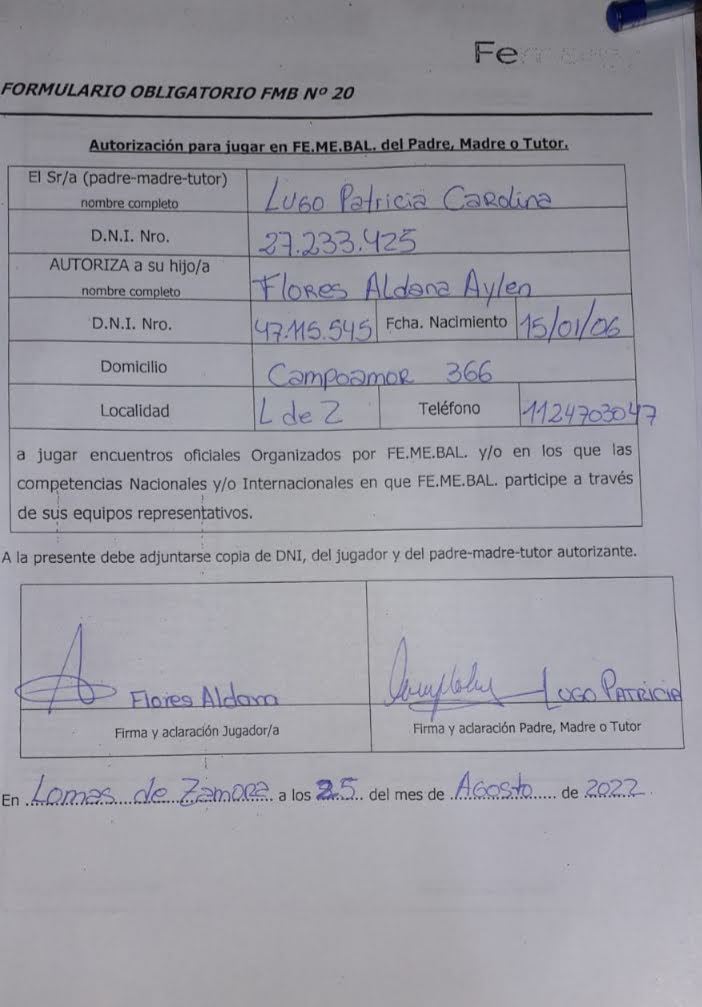 Fe
FORMULARIO OBLIGATORIO FMB Nº 20
Autorización para jugar en FE.ME.BAL. del Padre, Madre o Tutor.
El Sr/a (padre-madre-tutor)
nombre completo
Lugo Patricia Carolina
D.N.I. Nro.
27.233.425
AUTORIZA a su hijo/a
nombre completo
Flores Aldana Aylen
D.N.I. Nro.
47.115.545
Fcha. Nacimiento
15/01/06
Domicilio
Campoamor 366
Localidad
L de Z
Teléfono
1124703047
a jugar encuentros oficiales Organizados por FE.ME.BAL. y/o en los que las
competencias Nacionales y/o Internacionales en que FE.ME.BAL. participe a través
de sus equipos representativos.
A la presente debe adjuntarse copia de DNI, del jugador y del padre-madre-tutor autorizante.
Flores Aldana
Lugo Patricia
Firma y aclaración Jugador/a
Firma y aclaración Padre, Madre o Tutor
En Lomas de Zamora a los 25 del mes de Agosto de 2022